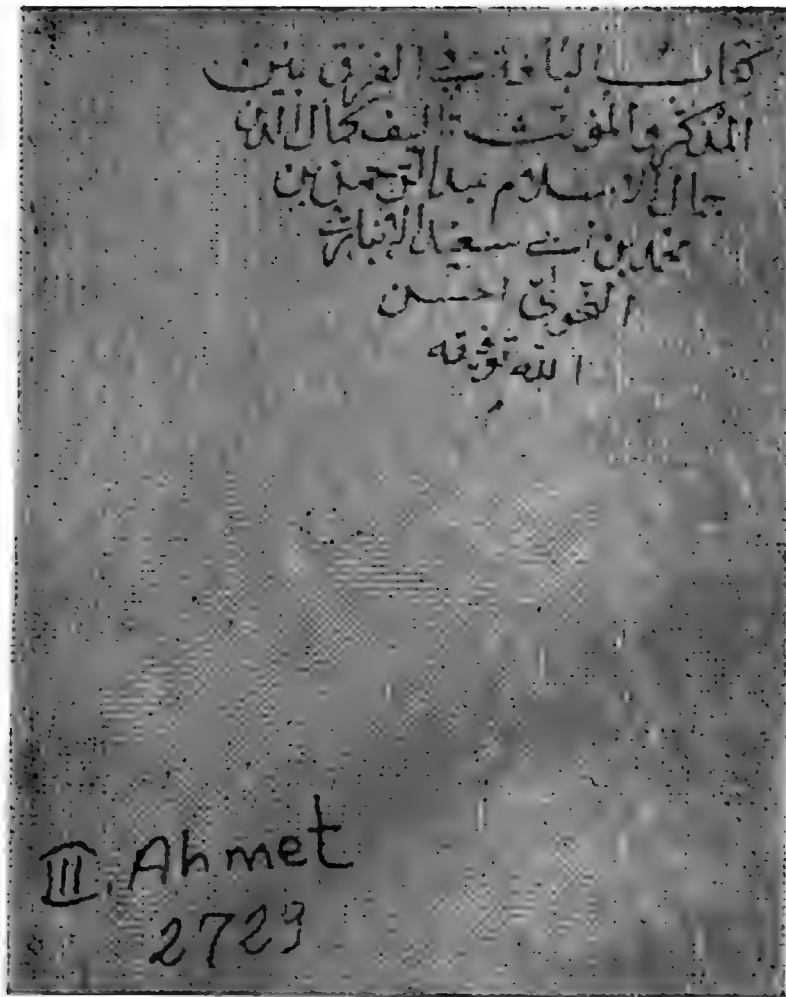 كتاب البلغة في الفرق بين
المذكر والمؤنث تأليف كمال الدين
جمال الاسلام عبد الرحمن بن
محمد بن أبي سعيد الانباري
النحوي احسن
الله توفيقه
III. Ahmet
2729